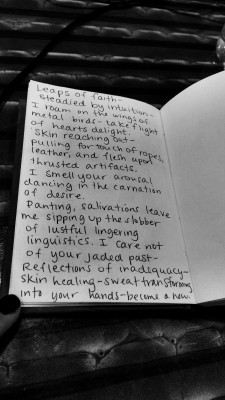 Leaps of faith-
steadied by intuition-
I roam on the wings of
metal birds- take flight
of hearts delight.
Skin reaching out-
pulling for touch of ropes,
leather, and flesh upon
thrusted artifacts.
I smell your arousal
dancing in the carnation
of desire.
Panting, salivations leave
me sipping up the slobber
of lustful lingering
linguistics. I care not
of your jaded past-
Reflections of inadequacy-
skin healing-sweat transforming
into your hands-become a new.